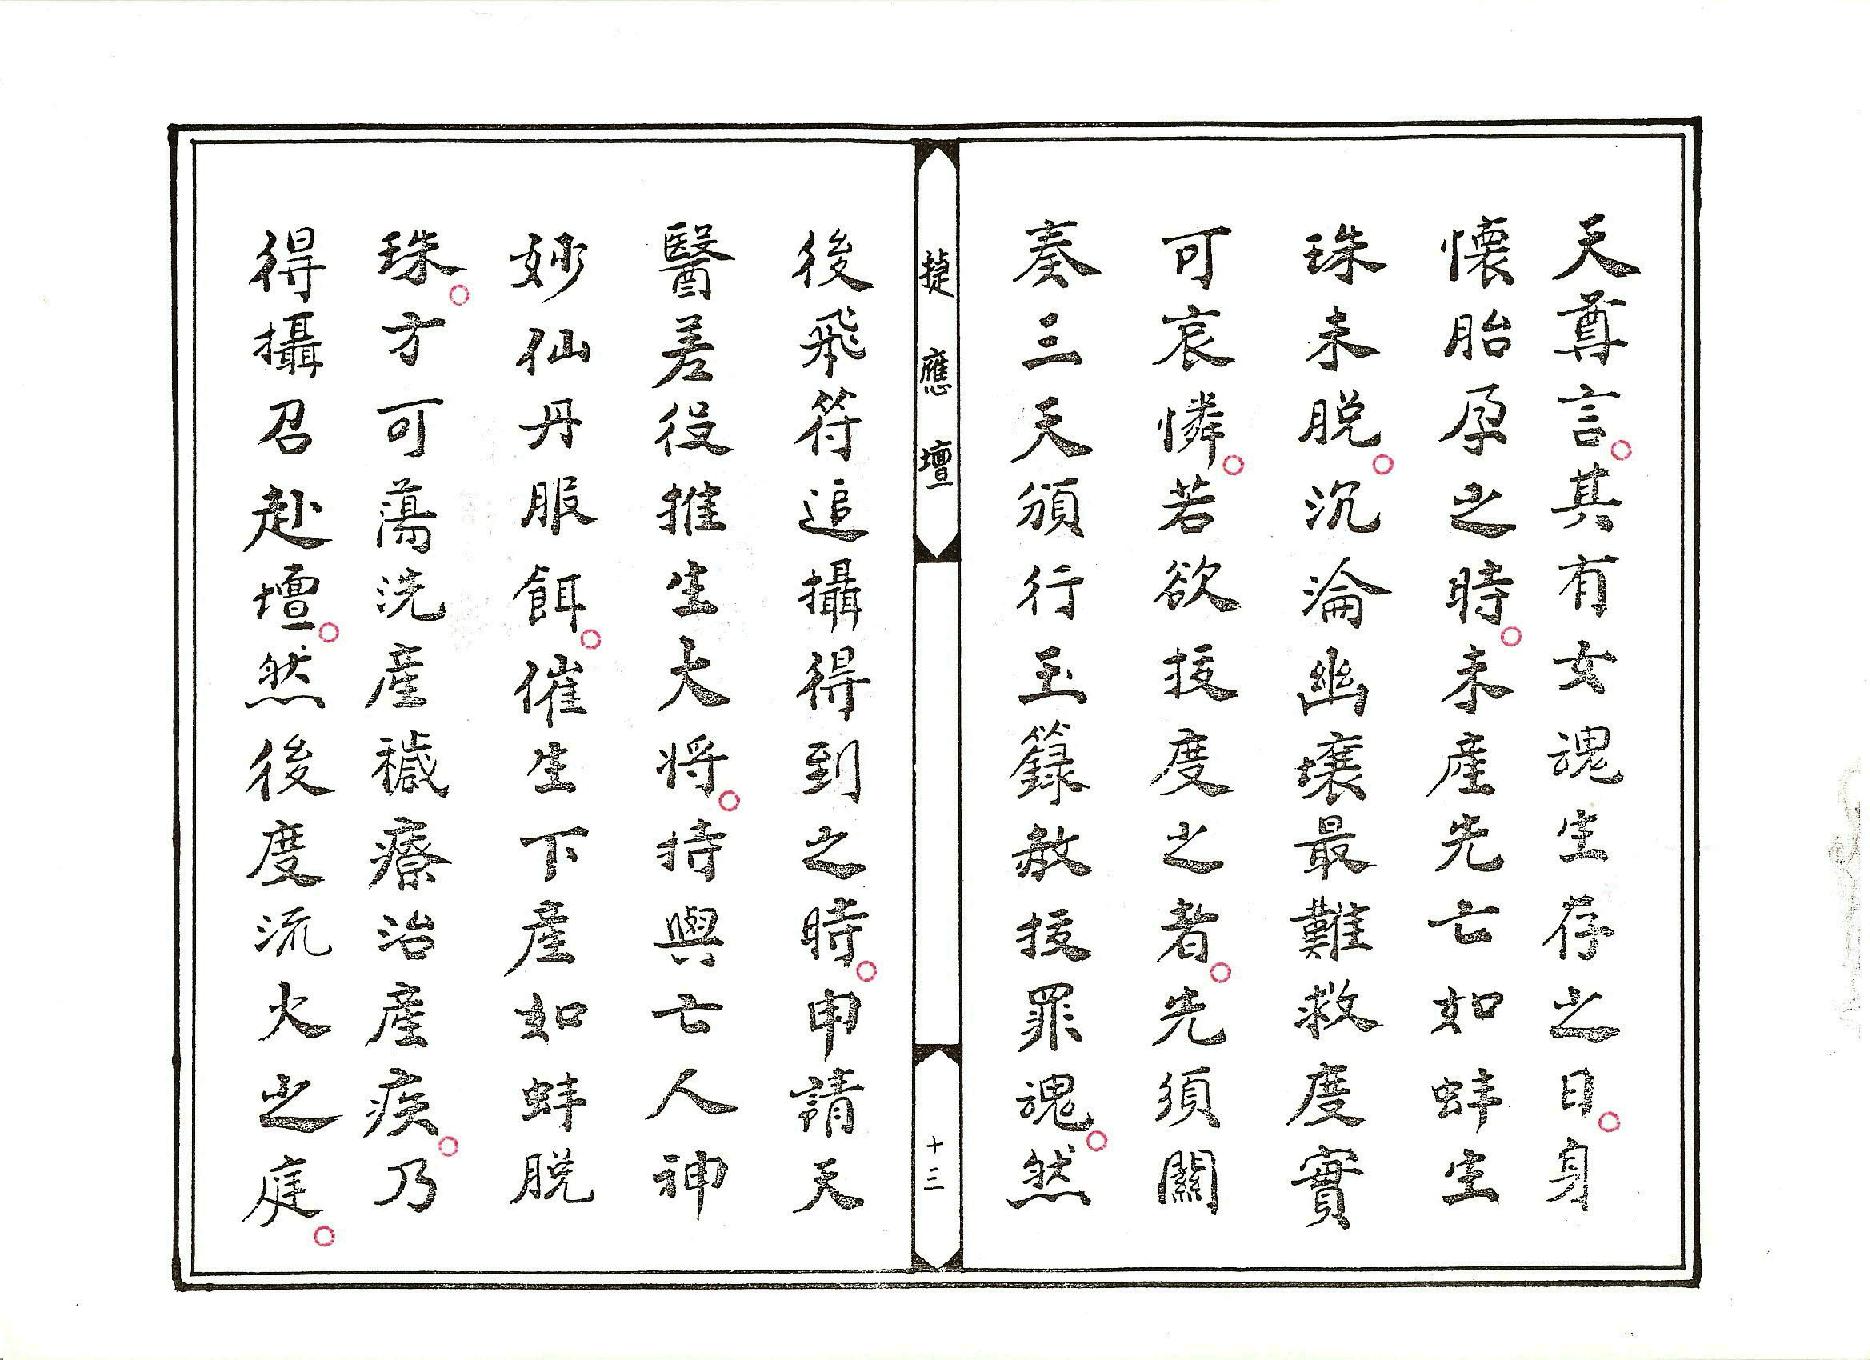 天尊言。其有女魂生存之日。身
懷胎孕之時。未產先亡如蚌生
珠未脫。沉淪幽壤最難救度實
可哀憐。若欲拔度之者。先須關
奏三天頒行玉籙赦拔罪魂。然
捷應壇
十三
後飛符追攝得到之時。申請天
醫差役推生大將。持與亡人神
妙仙丹服餌。催生下產如蚌脫
珠。方可蕩洗產穢療治產疾。乃
得攝召赴壇。然後度流火之庭。